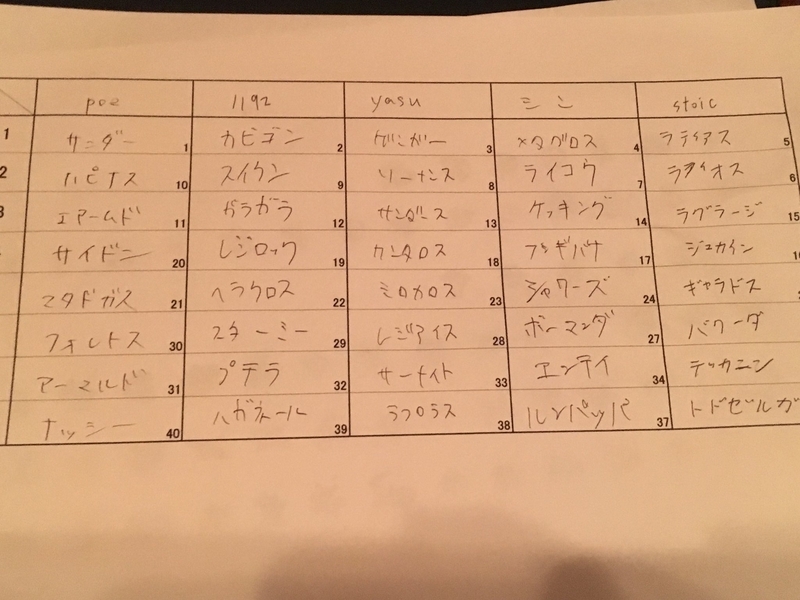 poe 1192 yasu シン stoic
1 サンダー 1 カビゴン 2 ゲンガー 3 メタグロス 4 ラティアス 5
2 ハピナス 10 スイクン 9 ソーナンス 8 ライコウ 7 ラティオス 6
3 エアームド 11 ガラガラ 12 サンダース 13 ケッキング 14 ラグラージ 15
サイドン 20 レジロック 19 ケンタロス 18 フシギバナ 17 ジュカイン
マタドガス 21 ヘラクロス 22 ミロカロス 23 シャワーズ 24 ギャラドス
フォレトス 30 スターミー 29 レジアイス 28 ボーマンダ 27 バクーダ
アーマルド 31 プテラ 32 サーナイト 33 エンテイ 34 テッカニン
ナッシー 40 ハガネール 39 ラプラス 38 ルンパッパ 37 トドゼルガ